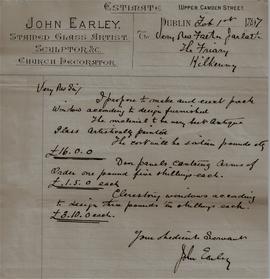 Estimate
Upper Camden Street
John Earley,
Stained Glass Artist,
Sculptor &c.
Church Decorator.
Dublin Feb 1st 1887
To Very Rev Father
The Friary
Kilkenny
Very Rev Sir
I propose to make and erect each
window according to design furnished.
The material to be very best Antique
Glass Artistically painted
The cost will be sixteen pounds stg
£16.0.0
Arms of
Order one pound five shillings each.
£1.5.0 each
Clerestory windows according
to design three pounds ten shillings each.
£3.10.0 each.
Your Obedient Servant
John Earley